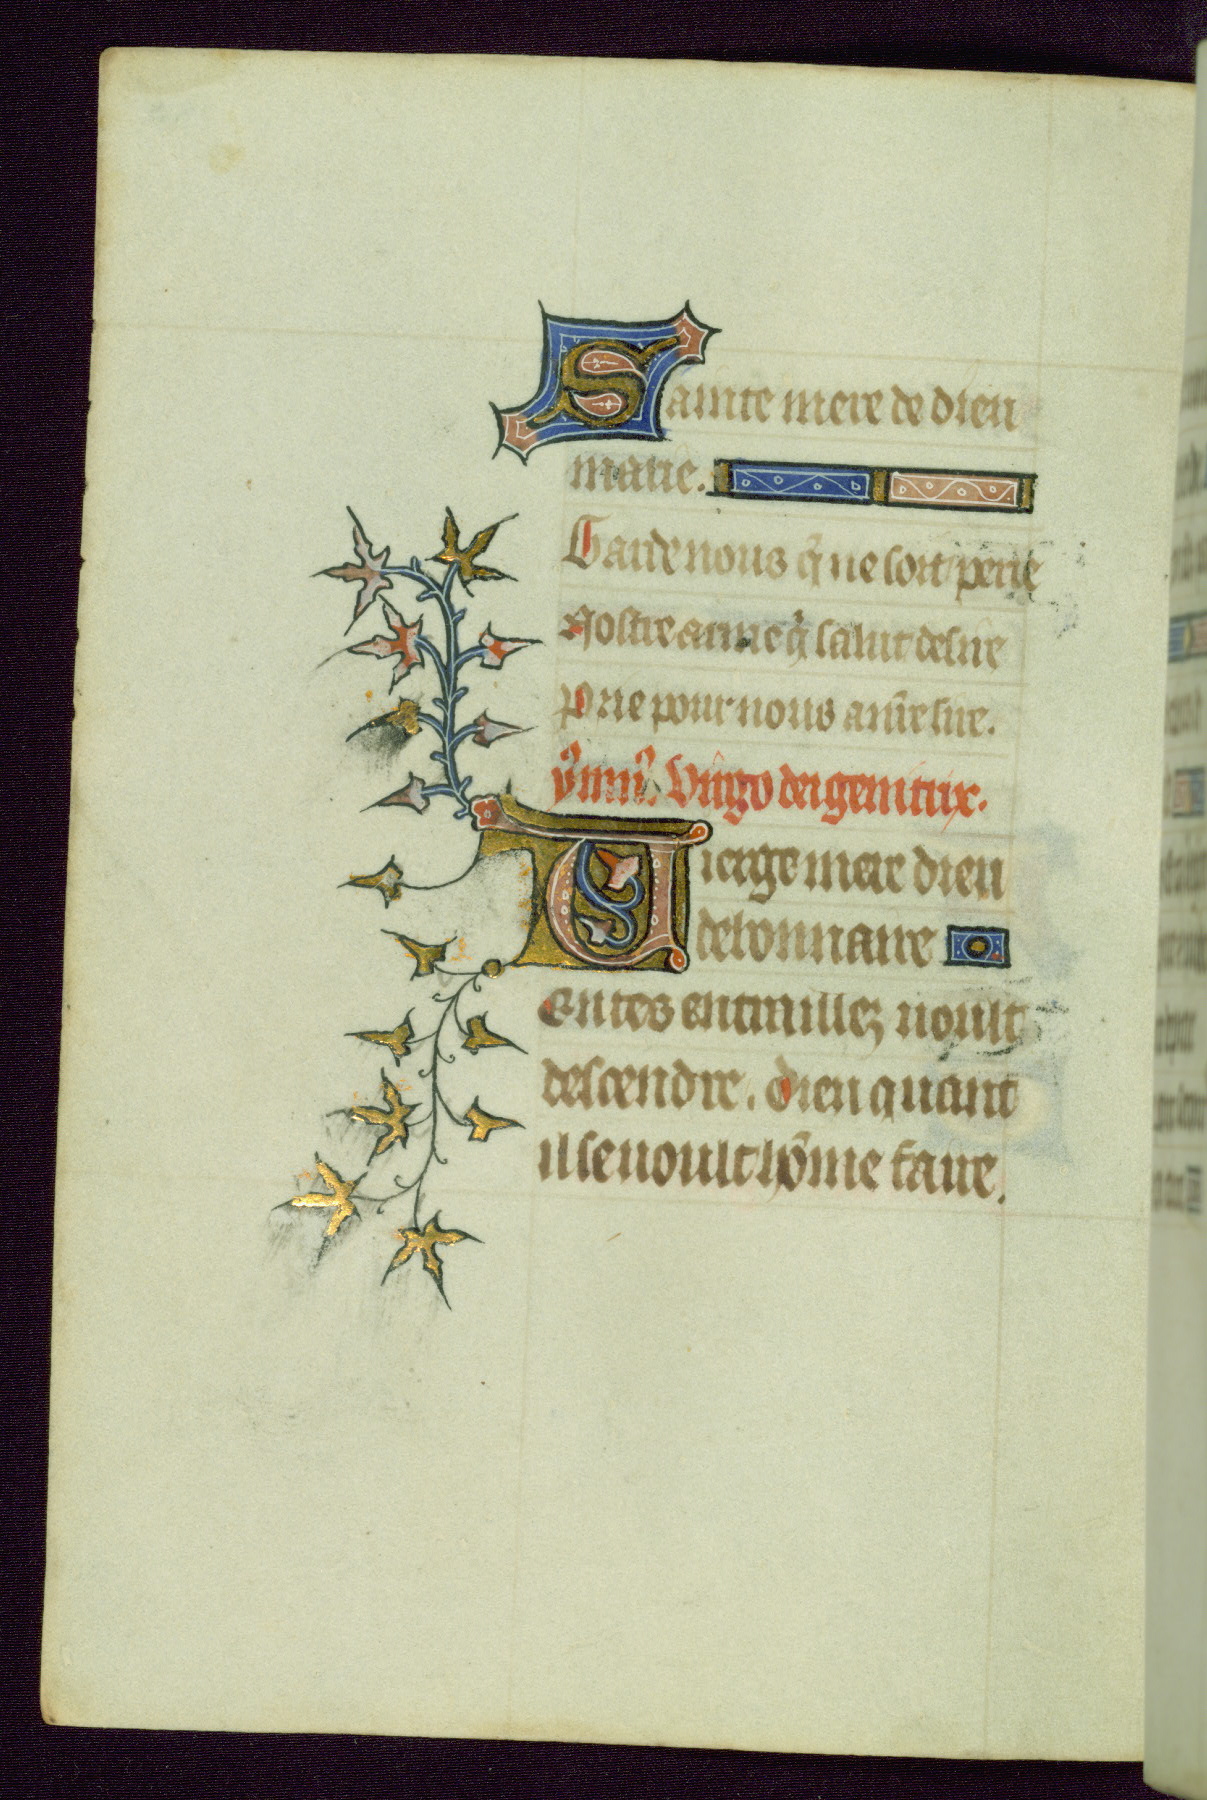 Sainte mere de dieu
marie.
Garde nous q̃ ne soit perie
Nostre ame q̃ salut desire
Prie pour nous a nr̃e sire.
Virgo dei genitrix.
Vierge mere dieu
debonnaire
En tes entrailles voult
descendre. dieu quant
il se voult hõme faire.